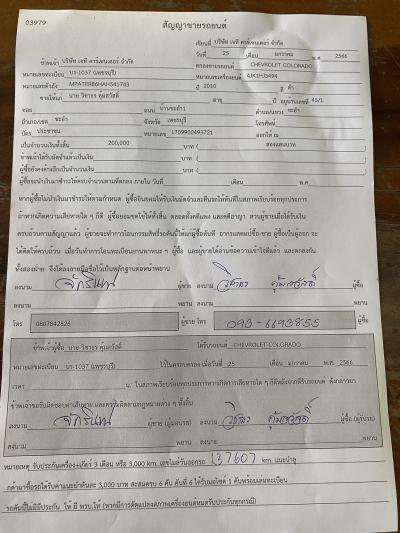 03979
สัญญาขายรถยนต์
เขียนที่ บริษัท เจที คาร์เซนเตอร์ จำกัด
ข้าพเจ้า บริษัท เจที คาร์เซนเตอร์ จำกัด วันที่ 25 เดือน มกราคม พ.ศ. 2566
หมายเลขทะเบียน บร-1037 (เพชรบุรี) ตกลงขายรถยนต์ CHEVROLET COLORADO
หมายเลขตัวถัง MPATERB6HAH541743 หมายเลขเครื่องยนต์ 4JK1HJ3494
ขายให้แก่ นาย วิชาธร คุ้มสวัสดิ์ ปี 2010 สี ดำ
ปี อยู่บ้านเลขที่ 45/1
ซอย ถนน บ้านชะอำ1 ตำบล/แขวง ชะอำ
อำเภอ/เขต ชะอำ จังหวัด เพชรบุรี โทรศัพท์
บัตร ประชาชน หมายเลข 1709900493721 ออกให้ ณ
เป็นจำนวนเงินทั้งสิ้น 200,000 บาท ( สองแสนบาท
ข้าพเจ้าได้รับมัดจำแล้วเป็นเงิน บาท (
ผู้ซื้อยังคงค้างอีกเป็นจำนวนเงิน บาท (
ผู้ซื้อจะนำเงินมาชำระให้ครบจำนวนตามที่ตกลง ภายใน วันที่ เดือน พ.ศ.
หากผู้ซื้อไม่นำเงินมาชำระให้ตามกำหนด ผู้ซื้อยินยอมให้รับเงินมัดจำและคืนรถให้ทันทีในสภาพเรียบร้อยทุกประการ
ถ้าหากเกิดความเสียหายใด ๆ ก็ดี ผู้ซื้อยอมชดใช้ให้ทั้งสิ้น ตลอดทั้งคดีแพ่ง และคดีอาญา ส่วนผู้ขายเมื่อได้รับเงิน
ครบถ้วนตามสัญญาแล้ว ผู้ขายจะทำการโอนกรรมสิทธิ์รถคันนี้ให้แก่ผู้ซื้อทันที
ได้คิดให้ครบถ้วน เมื่อวันทำการโอนทะเบียนยานพาหนะ ๆ ผู้ซื้อ และผู้ขายได้อ่านข้อความเข้าใจดีแล้ว และตกลงกัน
ทั้งสองฝ่าย จึงได้ลงลายมือชื่อไว้เป็นหลักฐานต่อหน้าพยาน
ลงนาม ผู้ขาย ลงนาม ผู้ซื้อ
ลงนาม พยาน ลงนาม พยาน
โทร 0807842826 ผู้ขาย โทร 093-6693855 ผู้ซื้อ
ข้าพเจ้าผู้ซื้อ นาย วิชาธร คุ้มสวัสดิ์ ได้รับรถยนต์ CHEVROLET COLORADO
หมายเลขทะเบียน บร-1037 (เพชรบุรี) ไว้ในครอบครอง เมื่อวันที่ 25 เดือน มกราคม พ.ศ. 2566
เวลา น. ในสภาพเรียบร้อยทุกประการ
ลงนาม ผู้ขาย (ผู้มอบรถ) ลงนาม ผู้ซื้อ (ผู้รับรถ)
ลงนาม พยาน ลงนาม พยาน
หมายเหตุ รับประกันเครื่อง+เกียร์ 3 เดือน หรือ 3,000 km. เลขไมล์วันออกรถ 137607 km. แนะนำลู
กค้ามาซื้อรถได้รับค่าแนะนำคันละ 3,000 บาท สะสมครบ 6 คัน คันที่ 6 ได้รับมอไซค์ 1 คันพร้อมเล่มทะเบียน
รถคันนี้ไม่มีประกัน ให้ มี พรบ.ให้ (หากมีการดัดแปลงสภาพเครื่องยนต์หมดรับประกันทุกกรณี)